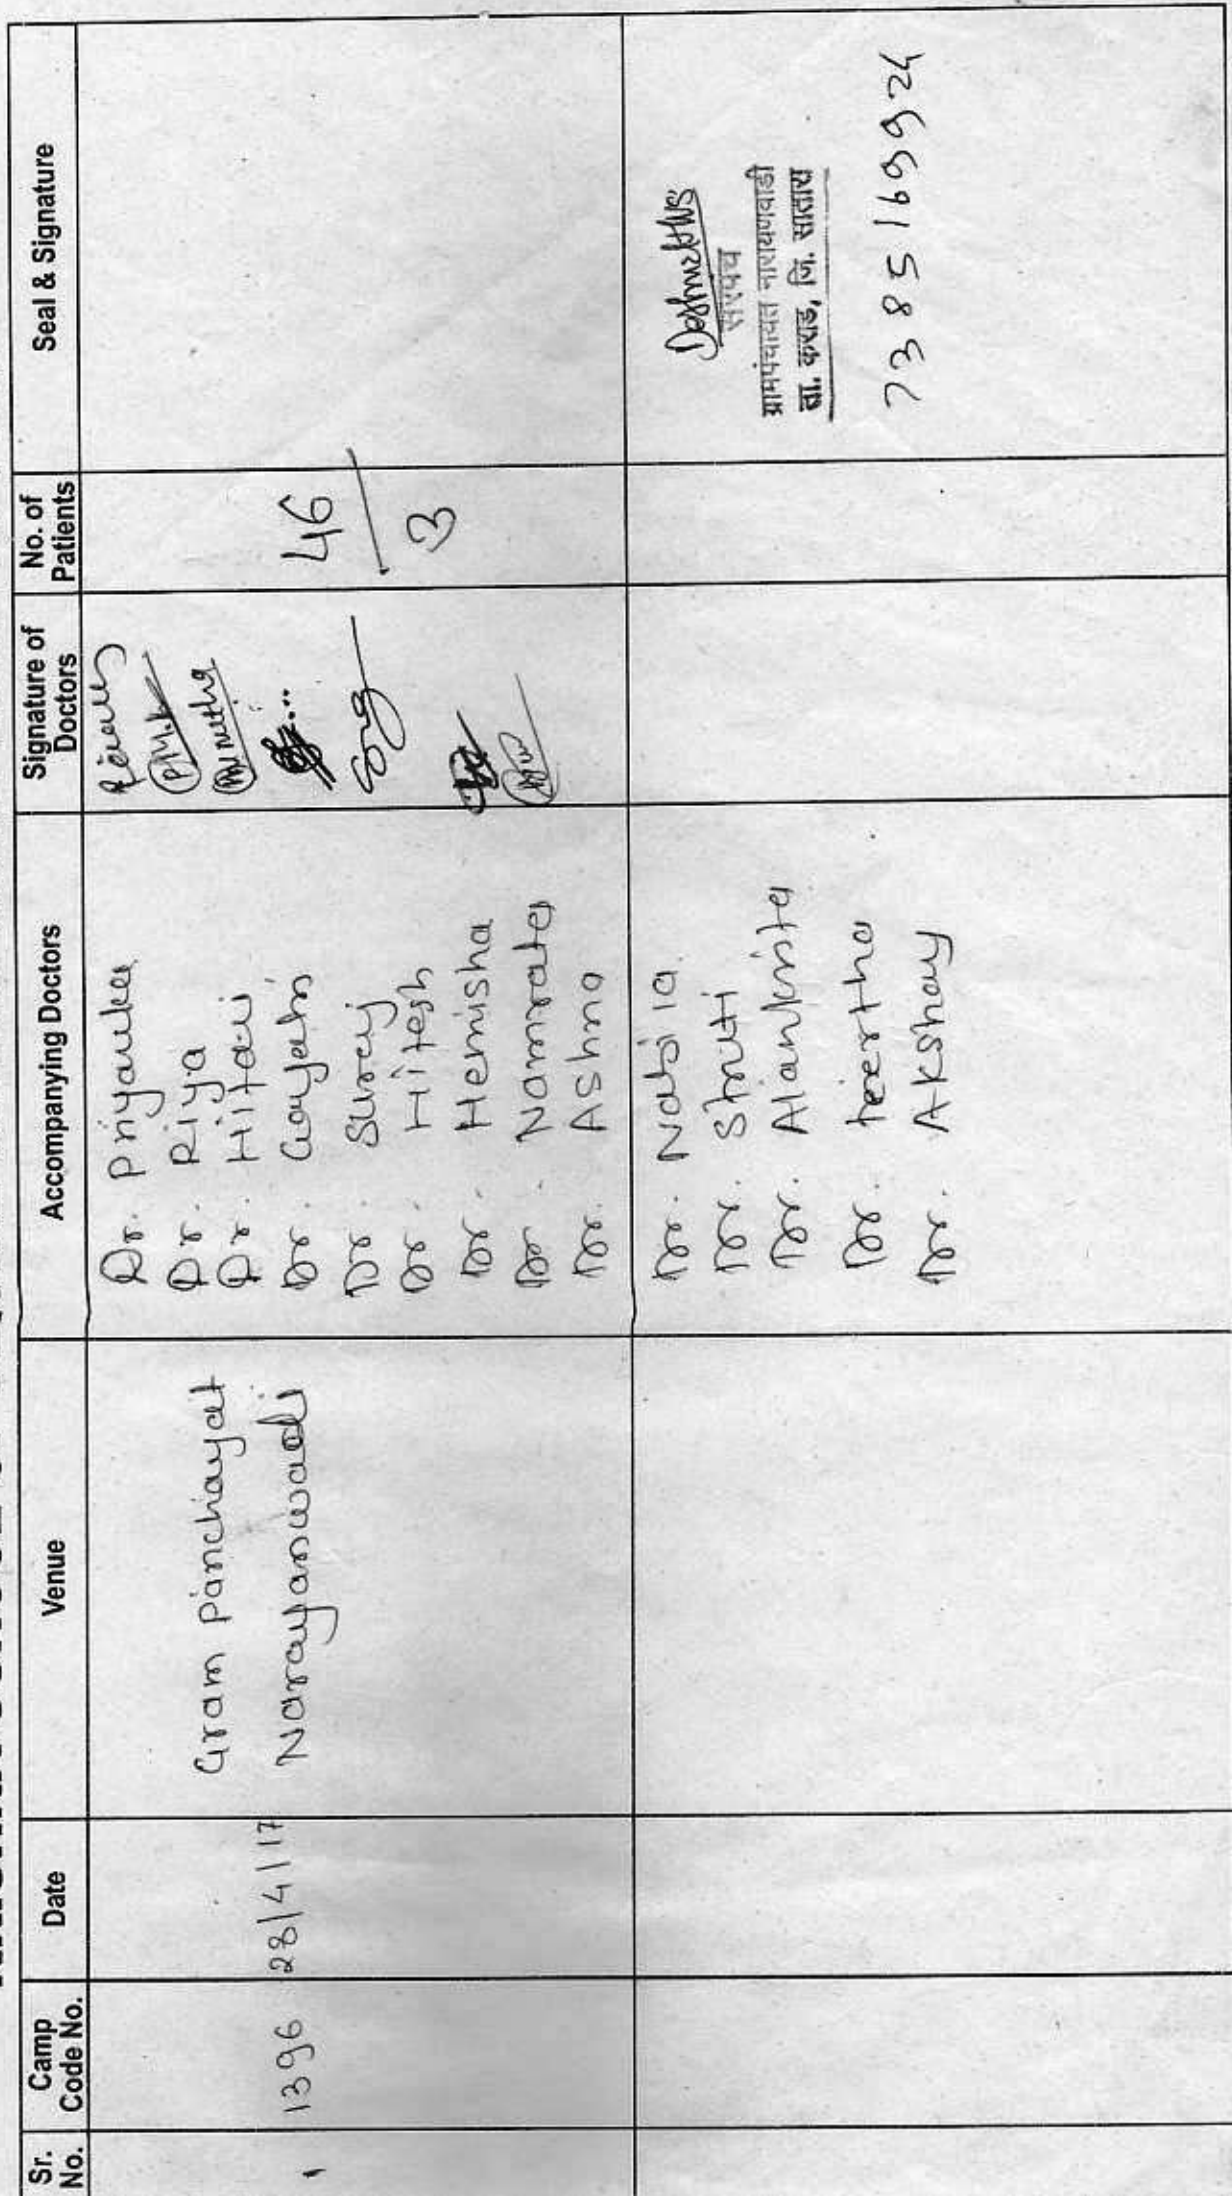 Sr. No.
Camp Code No.
Date
Venue
Accompanying Doctors
Signature of Doctors
No. of Patients
Seal & Signature
1
1396
28/4/17
Gram Panchayat
Narayanwadi
Dr. Priyanka
Dr. Riya
Dr. Hitavi
Dr. Gayatri
Dr. Suraj
Dr. Hitesh
Dr. Hemisha
Dr. Namrata
Dr. Ashna
46
3
Dr. Nabila
Dr. Shruti
Dr. Alankrita
Dr. Teertha
Dr. Akshay
सरपंच
ग्रामपंचायत नारायणवाडी
ता. कराड, जि. सातारा
7385169924